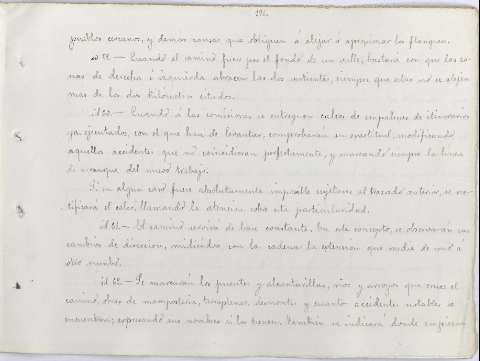 191.
posibles cercanos, y demas causas que obliguen á alejar ó aproximar los flanqueos.
id 19.— Cuando el camino fuese por el fondo de un valle, bastará con que las zonas
de derecha é izquierda abracen las dos vertientes, siempre que estas no se alejen
mas de los dos kilometros citados.
id 20.— Cuando á las comisiones se entreguen calcos de empalmes de itinerarios
ya ejecutados, con el que han de levantar, comprobarán su exactitud, modificando
aquellos accidentes que no coincidieran perfectamente, y marcando siempre la linea
de arranque del nuevo trabajo.
Si en algun caso fuese absolutamente imposible sujetarse al trazado anterior, se rectificará
el calco, llamando la atencion sobre esta particularidad.
id 21.— El camino servirá de base constante. En este concepto, se observarán sus
cambios de direccion, midiendo con la cadena la estension que medie de uno á
otro rumbo.
id 22.— Se marcarán los puentes y alcantarillas, rios y arroyos que cruce el
camino, obras de mamposteria, terraplenes, desmontes y cuantos accidentes notables se
encuentren; expresando sus nombres si los tienen. Tambien se indicará donde empiezan